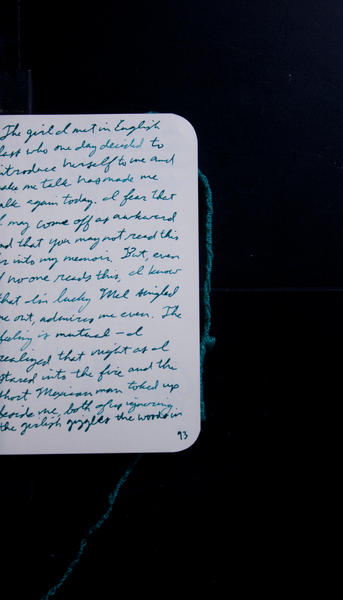 The girl I met in English
lass who one day decided to
introduce herself to me and
make me talk has made me
alk again today. I fear that
I may come off as awkward
nd that you may not read this
into my memoir. But, even
no one reads this, I know
that I'm lucky Mel singled
me out, admires me even. The
feeling is mutual - I
realized that night as I
stared into the fire and the
short Mexican man toked up
beside me, both of us ignoring
the girlish giggles the woods in
93